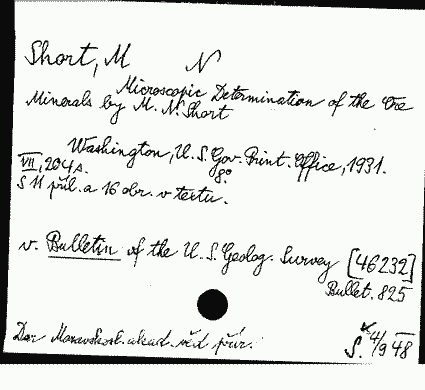 Short, M N
Microscopic Determination of the Ore
Minerals by M. N. Short
Washington, U.S. Gov. Print. Office, 1931.
VII, 204 s. 8°
S 11 příl. a 16 obr. v textu.
v. Bulletin of the U. S. Geolog. Survey [46232]
Bullet. 825
Dar Moravskosl. akad. věd přír.
S. 4/9 48